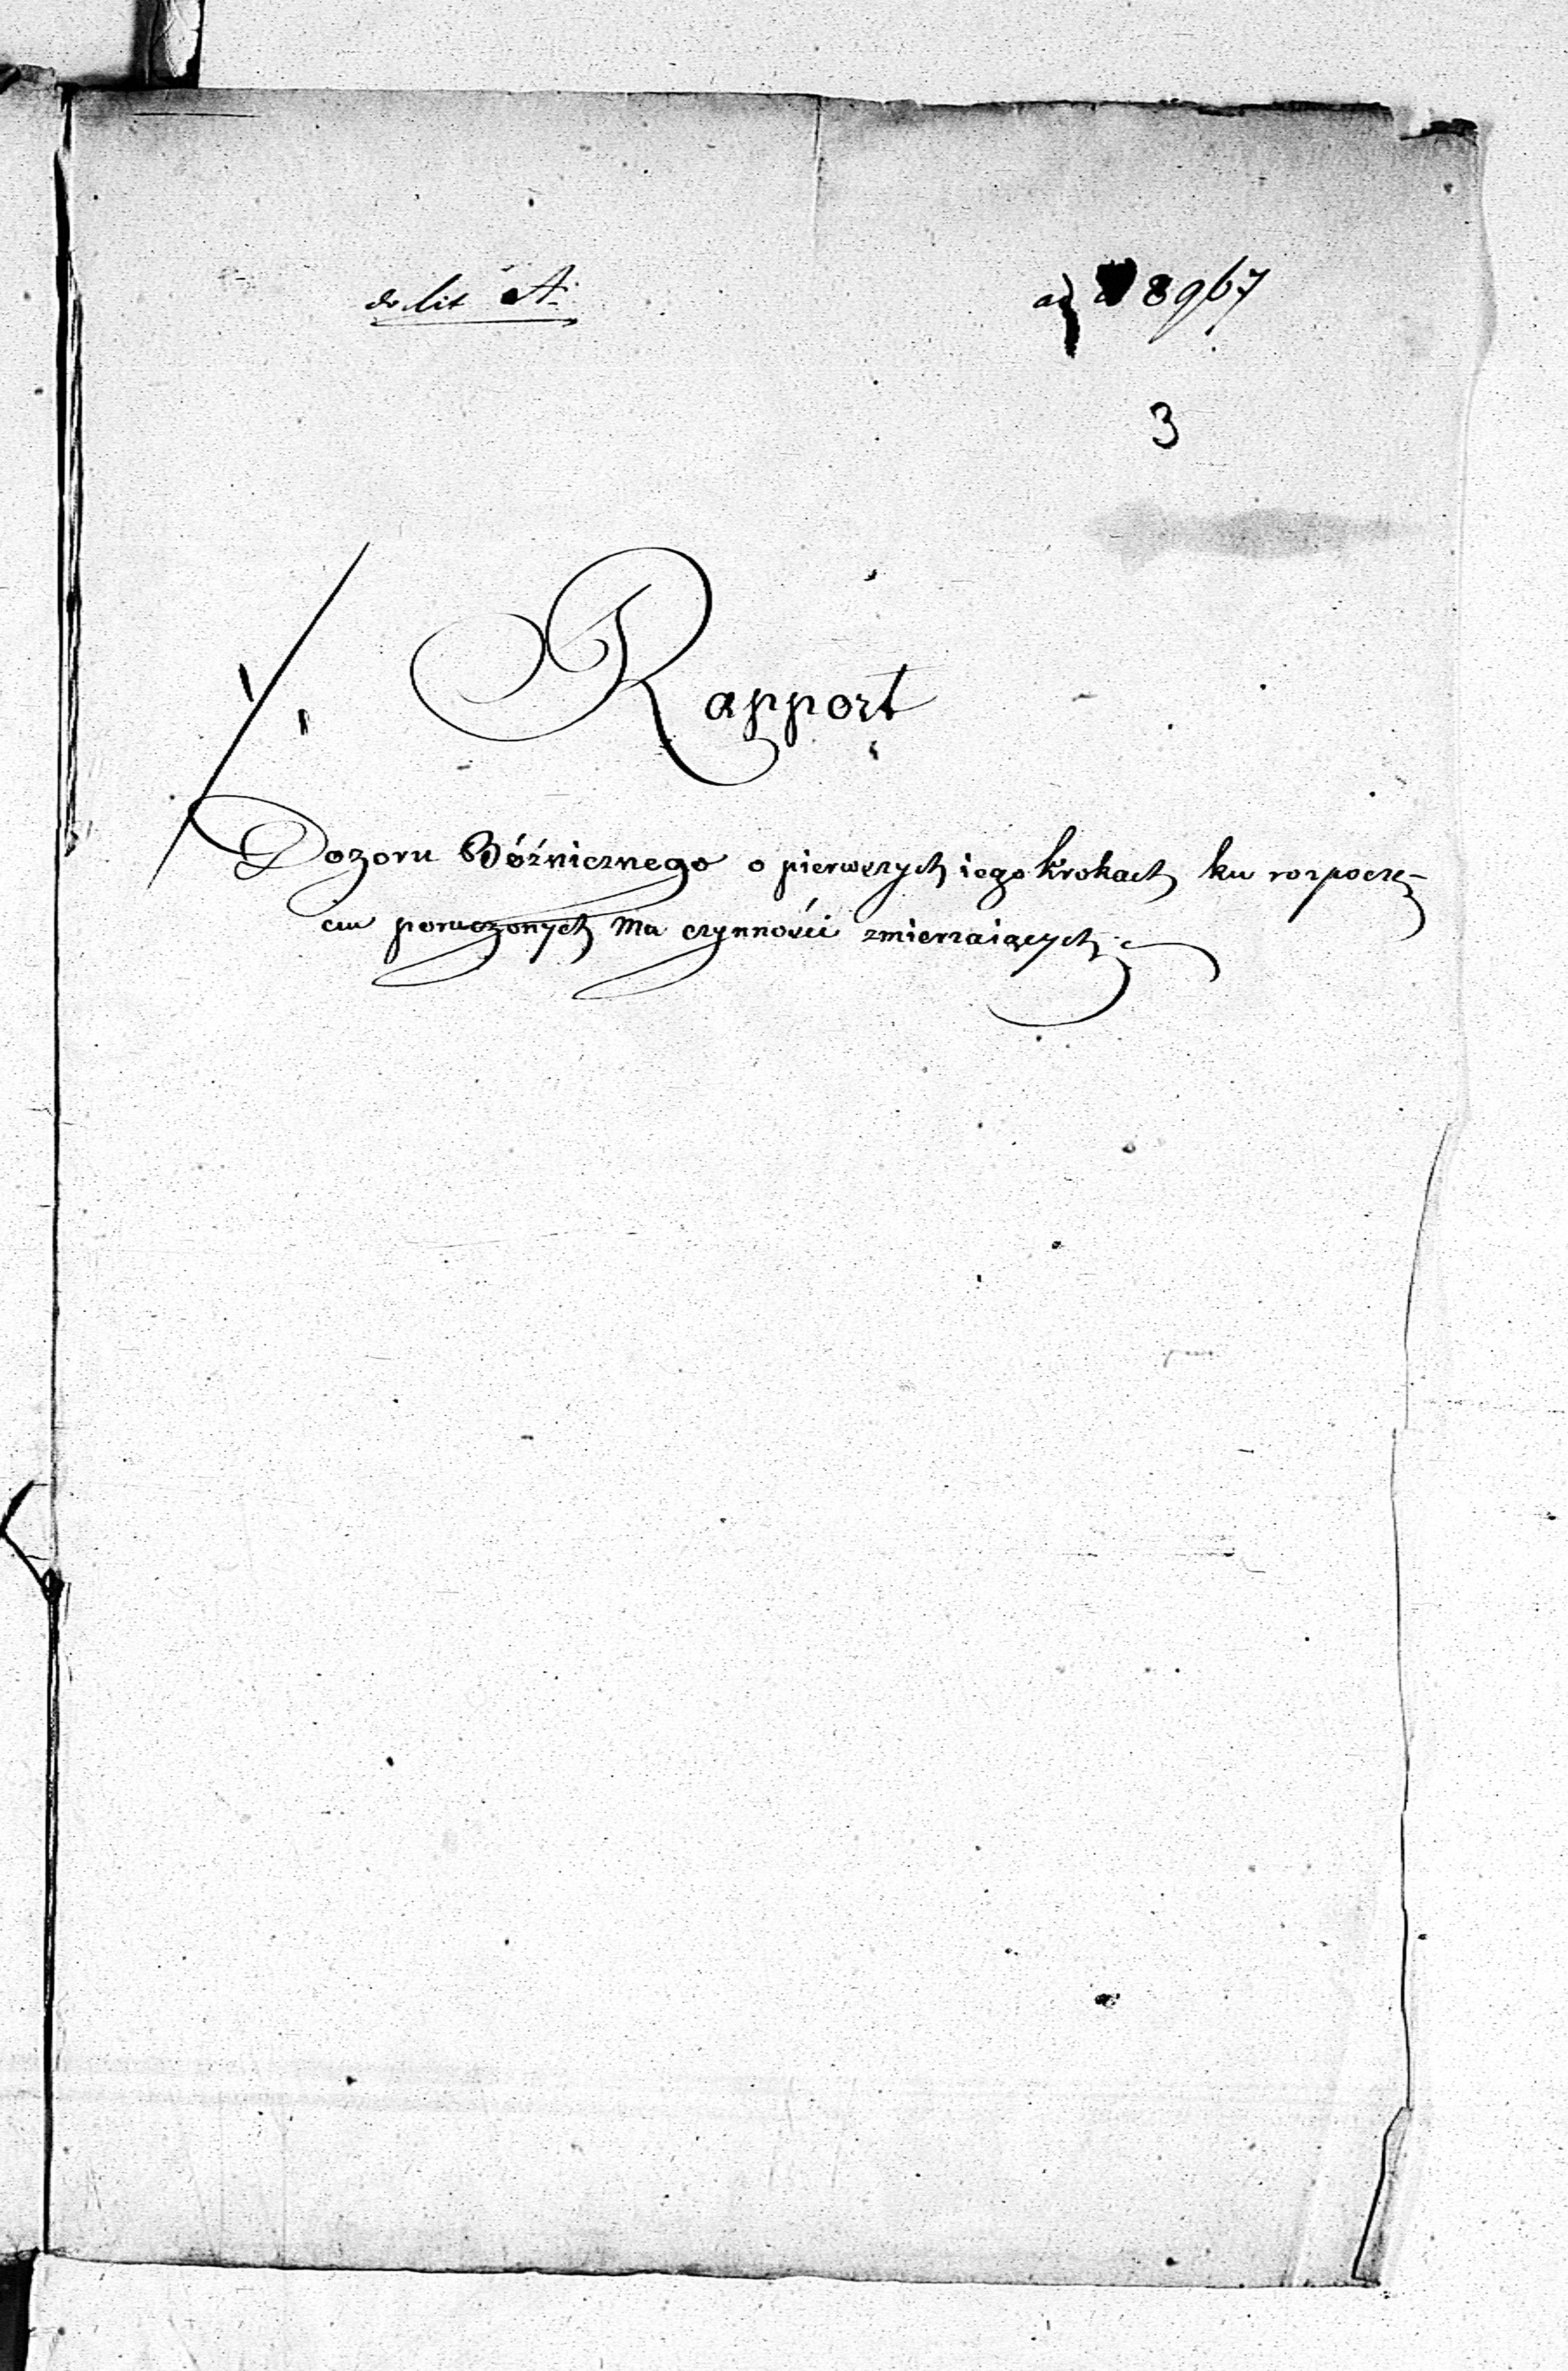 do lit A.
ad 8967
3
Rapport
Dozoru Bóźnicznego o pierwszych iego krokach ku rozpoczę-
ciu poruczonych Mu czynności zmierzaiących